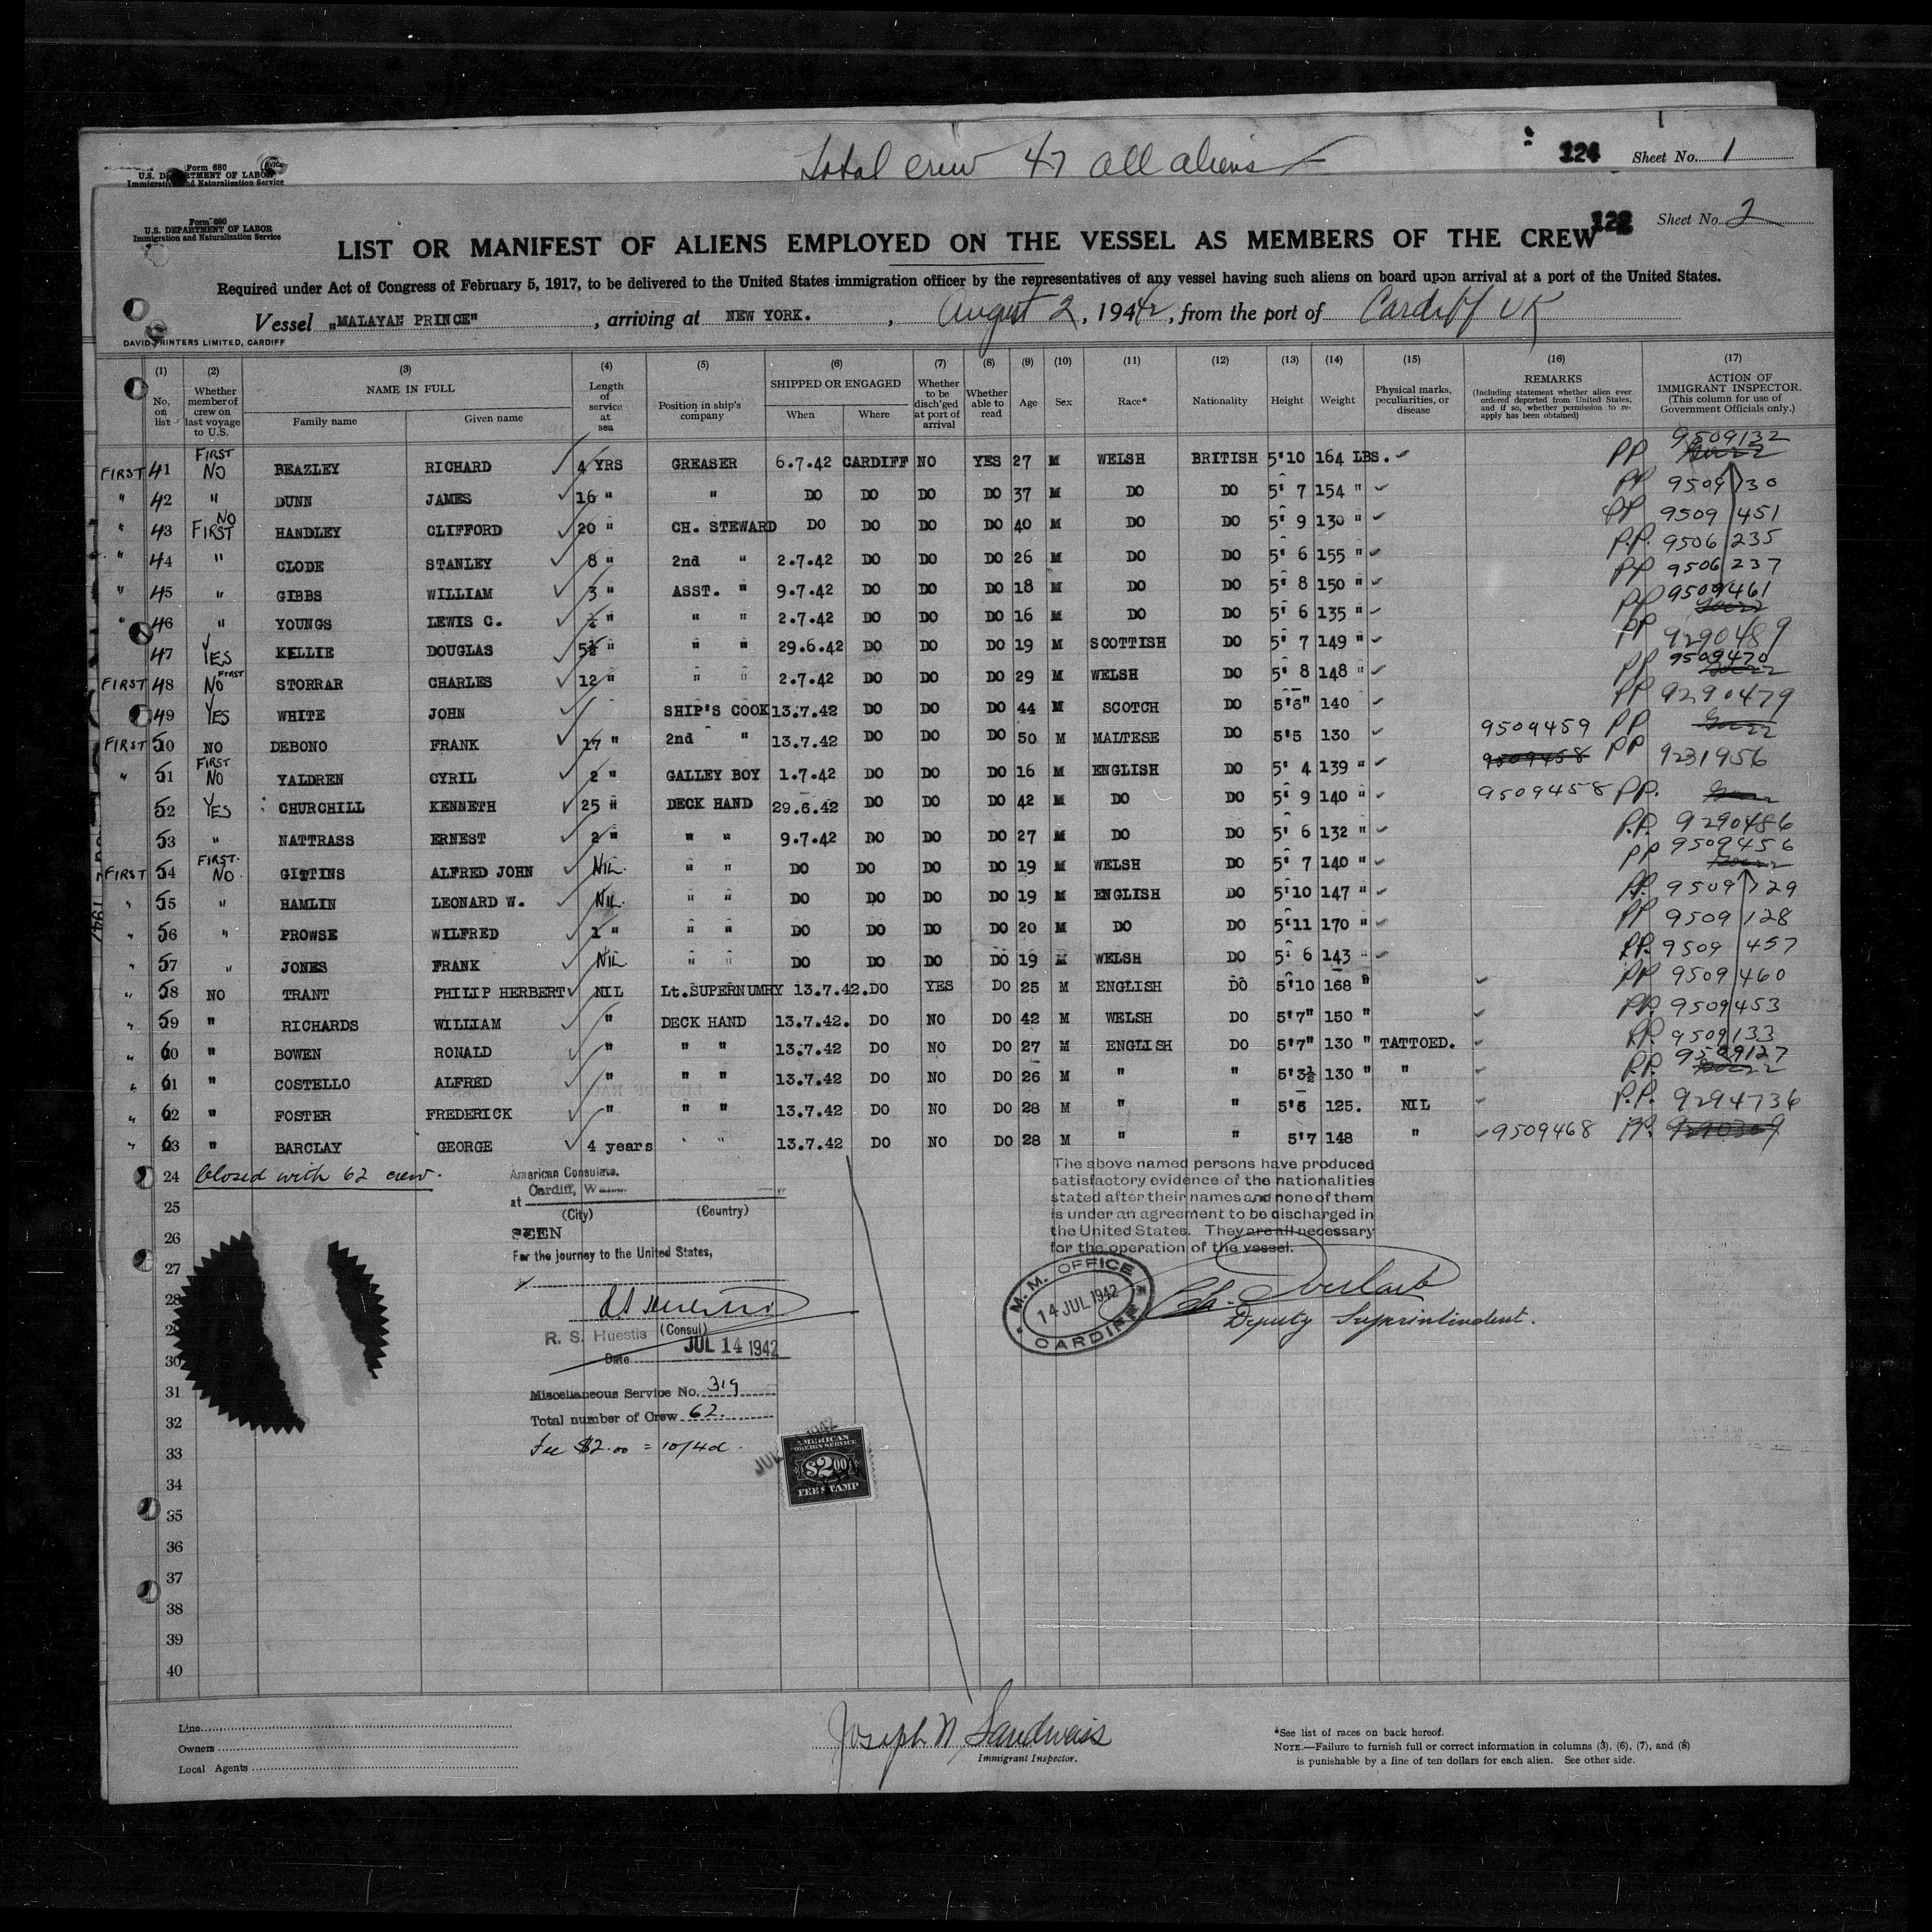 Form 680
U.S. DEPARTMENT OF LABOR
Immigration and Naturalization Service
Total crew 47 all aliens
124 Sheet No. 1
Form 680
U.S. DEPARTMENT OF LABOR
Immigration and Naturalization Service
Sheet No. 2
LIST OR MANIFEST OF ALIENS EMPLOYED ON THE VESSEL AS MEMBERS OF THE CREW
Required under Act of Congress of February 5, 1917, to be delivered to the United States immigration officer by the representatives of any vessel having such aliens on board upon arrival at a port of the United States.
Vessel "MALAYAN PRINCE", arriving at NEW YORK., August 2, 1942, from the port of Cardiff UK
DAVID PRINTERS LIMITED, CARDIFF
(1) No. on list (2) Whether member of crew on last voyage to U.S. (3) NAME IN FULL Family name Given name (4) Length of service at sea (5) Position in ship's company (6) SHIPPED OR ENGAGED When Where (7) Whether to be disch'ged at port of arrival (8) Whether able to read (9) Age (10) Sex (11) Race* (12) Nationality (13) Height (14) Weight (15) Physical marks, peculiarities, or disease (16) REMARKS (Including statement whether alien ever ordered deported from United States, and if so, whether permission to re-apply has been obtained) (17) ACTION OF IMMIGRANT INSPECTOR. (This column for use of Government Officials only.)
FIRST 41 FIRST NO BEAZLEY RICHARD 4 YRS GREASER 6.7.42 CARDIFF NO YES 27 M WELSH BRITISH 5'10 164 LBS. PP 9509132
" 42 " DUNN JAMES 16 " " DO DO DO DO 37 M DO DO 5' 7 154 " PP 9509130
" 43 NO FIRST HANDLEY CLIFFORD 20 " CH. STEWARD DO DO DO DO 40 M DO DO 5' 9 130 " PP 9509451
" 44 " CLODE STANLEY 8 " 2nd " 2.7.42 DO DO DO 26 M DO DO 5' 6 155 " P.P. 9506235
" 45 " GIBBS WILLIAM 3 " ASST. " 9.7.42 DO DO DO 18 M DO DO 5' 8 150 " PP 9506237
" 46 " YOUNGS LEWIS C. " " " 2.7.42 DO DO DO 16 M DO DO 5' 6 135 " PP 9509461
47 YES KELLIE DOUGLAS 5½ " " " 29.6.42 DO DO DO 19 M SCOTTISH DO 5' 7 149 " PP 9290489
FIRST 48 NO FIRST STORRAR CHARLES 12 " " " 2.7.42 DO DO DO 29 M WELSH DO 5' 8 148 " PP 9509470
49 YES WHITE JOHN SHIP'S COOK 13.7.42 DO DO DO 44 M SCOTCH DO 5'6" 140 PP 9290479
FIRST 50 NO DEBONO FRANK 17 " 2nd " 13.7.42 DO DO DO 50 M MALTESE DO 5'5 130 9509459 PP
" 51 FIRST NO YALDREN CYRIL 2 " GALLEY BOY 1.7.42 DO DO DO 16 M ENGLISH DO 5' 4 139 " 9509458 PP 9231956
52 YES CHURCHILL KENNETH 25 " DECK HAND 29.6.42 DO DO DO 42 M DO DO 5' 9 140 " 9509458 PP.
53 " NATTRASS ERNEST 2 " " " 9.7.42 DO DO DO 27 M DO DO 5' 6 132 " P.P. 9290486
FIRST 54 FIRST. NO. GITTINS ALFRED JOHN NIL. " " DO DO DO DO 19 M WELSH DO 5' 7 140 " PP 9509456
" 55 " HAMLIN LEONARD W. NIL. " " DO DO DO DO 19 M ENGLISH DO 5'10 147 " PP. 9509129
" 56 " PROWSE WILFRED 1 " " " DO DO DO DO 20 M DO DO 5'11 170 " PP 9509128
" 57 " JONES FRANK NIL " " DO DO DO DO 19 M WELSH DO 5' 6 143 " P.P. 9509457
" 58 NO TRANT PHILIP HERBERT NIL Lt.SUPERNUMRY 13.7.42. DO YES DO 25 M ENGLISH DO 5'10 168 " PP 9509460
" 59 " RICHARDS WILLIAM " DECK HAND 13.7.42. DO NO DO 42 M WELSH DO 5'7" 150 " PP. 9509453
" 60 " BOWEN RONALD " " " 13.7.42 DO NO DO 27 M ENGLISH DO 5'7" 130 " TATTOED. P.P. 9509133
" 61 " COSTELLO ALFRED " " " 13.7.42 DO NO DO 26 M " " 5'3½ 130 " " P.P. 9509127
" 62 " FOSTER FREDERICK " " " 13.7.42 DO NO DO 28 M " " 5'6 125. NIL P.P. 9294736
" 63 " BARCLAY GEORGE 4 years " " 13.7.42 DO NO DO 28 M " " 5'7 148 " 9509468 PP. 9290309
24 Closed with 62 crew.
25
26
27
28
29
30
31
32
33
34
35
36
37
38
39
40
American Consulate.
at Cardiff, Wales
(City) (Country)
SEEN
For the journey to the United States,
R. S. Huestis (Consul)
Date JUL 14 1942
Miscellaneous Service No. 319
Total number of Crew 62.
Fee $2.00 = 10/4d.
AMERICAN
FOREIGN SERVICE
$2.00
FEE STAMP
The above named persons have produced
satisfactory evidence of the nationalities
stated after their names and none of them
is under an agreement to be discharged in
the United States. They are all necessary
for the operation of the vessel.
M.M. OFFICE
14 JUL 1942
CARDIFF
Deputy Superintendent.
Line
Owners
Local Agents
Joseph N Sandweiss
Immigrant Inspector.
*See list of races on back hereof.
NOTE.—Failure to furnish full or correct information in columns (3), (6), (7), and (8)
is punishable by a fine of ten dollars for each alien. See other side.